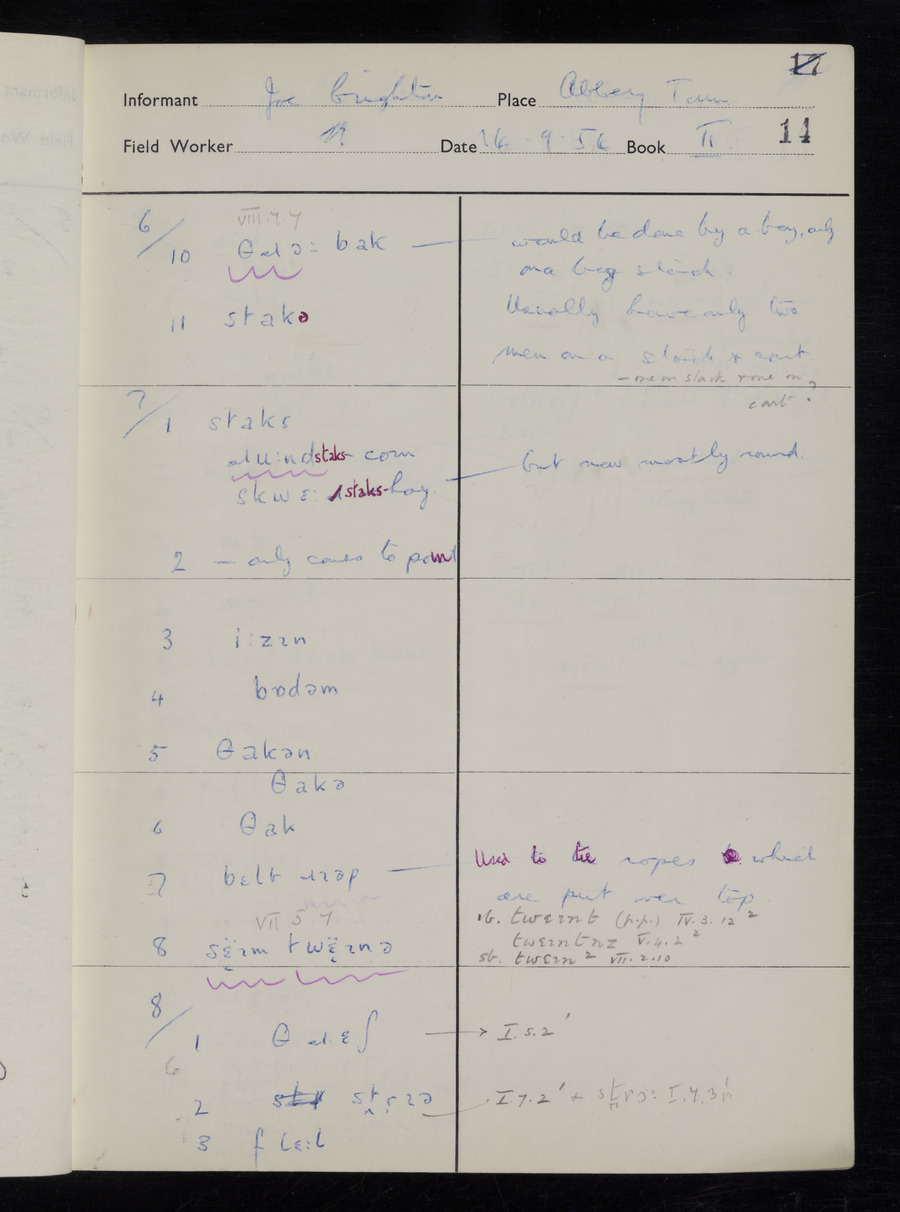 17
Informant Joe Brighton Place Abbey Town
Field Worker Date 16 9 56 Book II 14
6/ VIII.7.7
10 θɹɔ: bak — would be done by a boy, only
on a big stack.
11 stakə Usually have only two
men on a stack & cart
– one on stack & one on
cart?
7/ 1 staks
ɹu:nd staks- corn but now mostly round.
skwɛ: staks- hay
2 – only comes to point
3 i:zɪn
4 bɒdəm
5 θakən
θakə
6 θak
7 bɛlt ɹɪəp — Used to tie ropes which
are put over top.
VII 5 7 vb. twɛɪnt (p.p.) IV.3.12²
twɛɪntnz V.4.2²
8 sɛ̈ɪm twɛ̈ɪnə sb. twɛɪn² VII.2.10
8/
1 θɹɛʃ → I.5.2'
6
2 I.7.2' +
3 flɛ:l